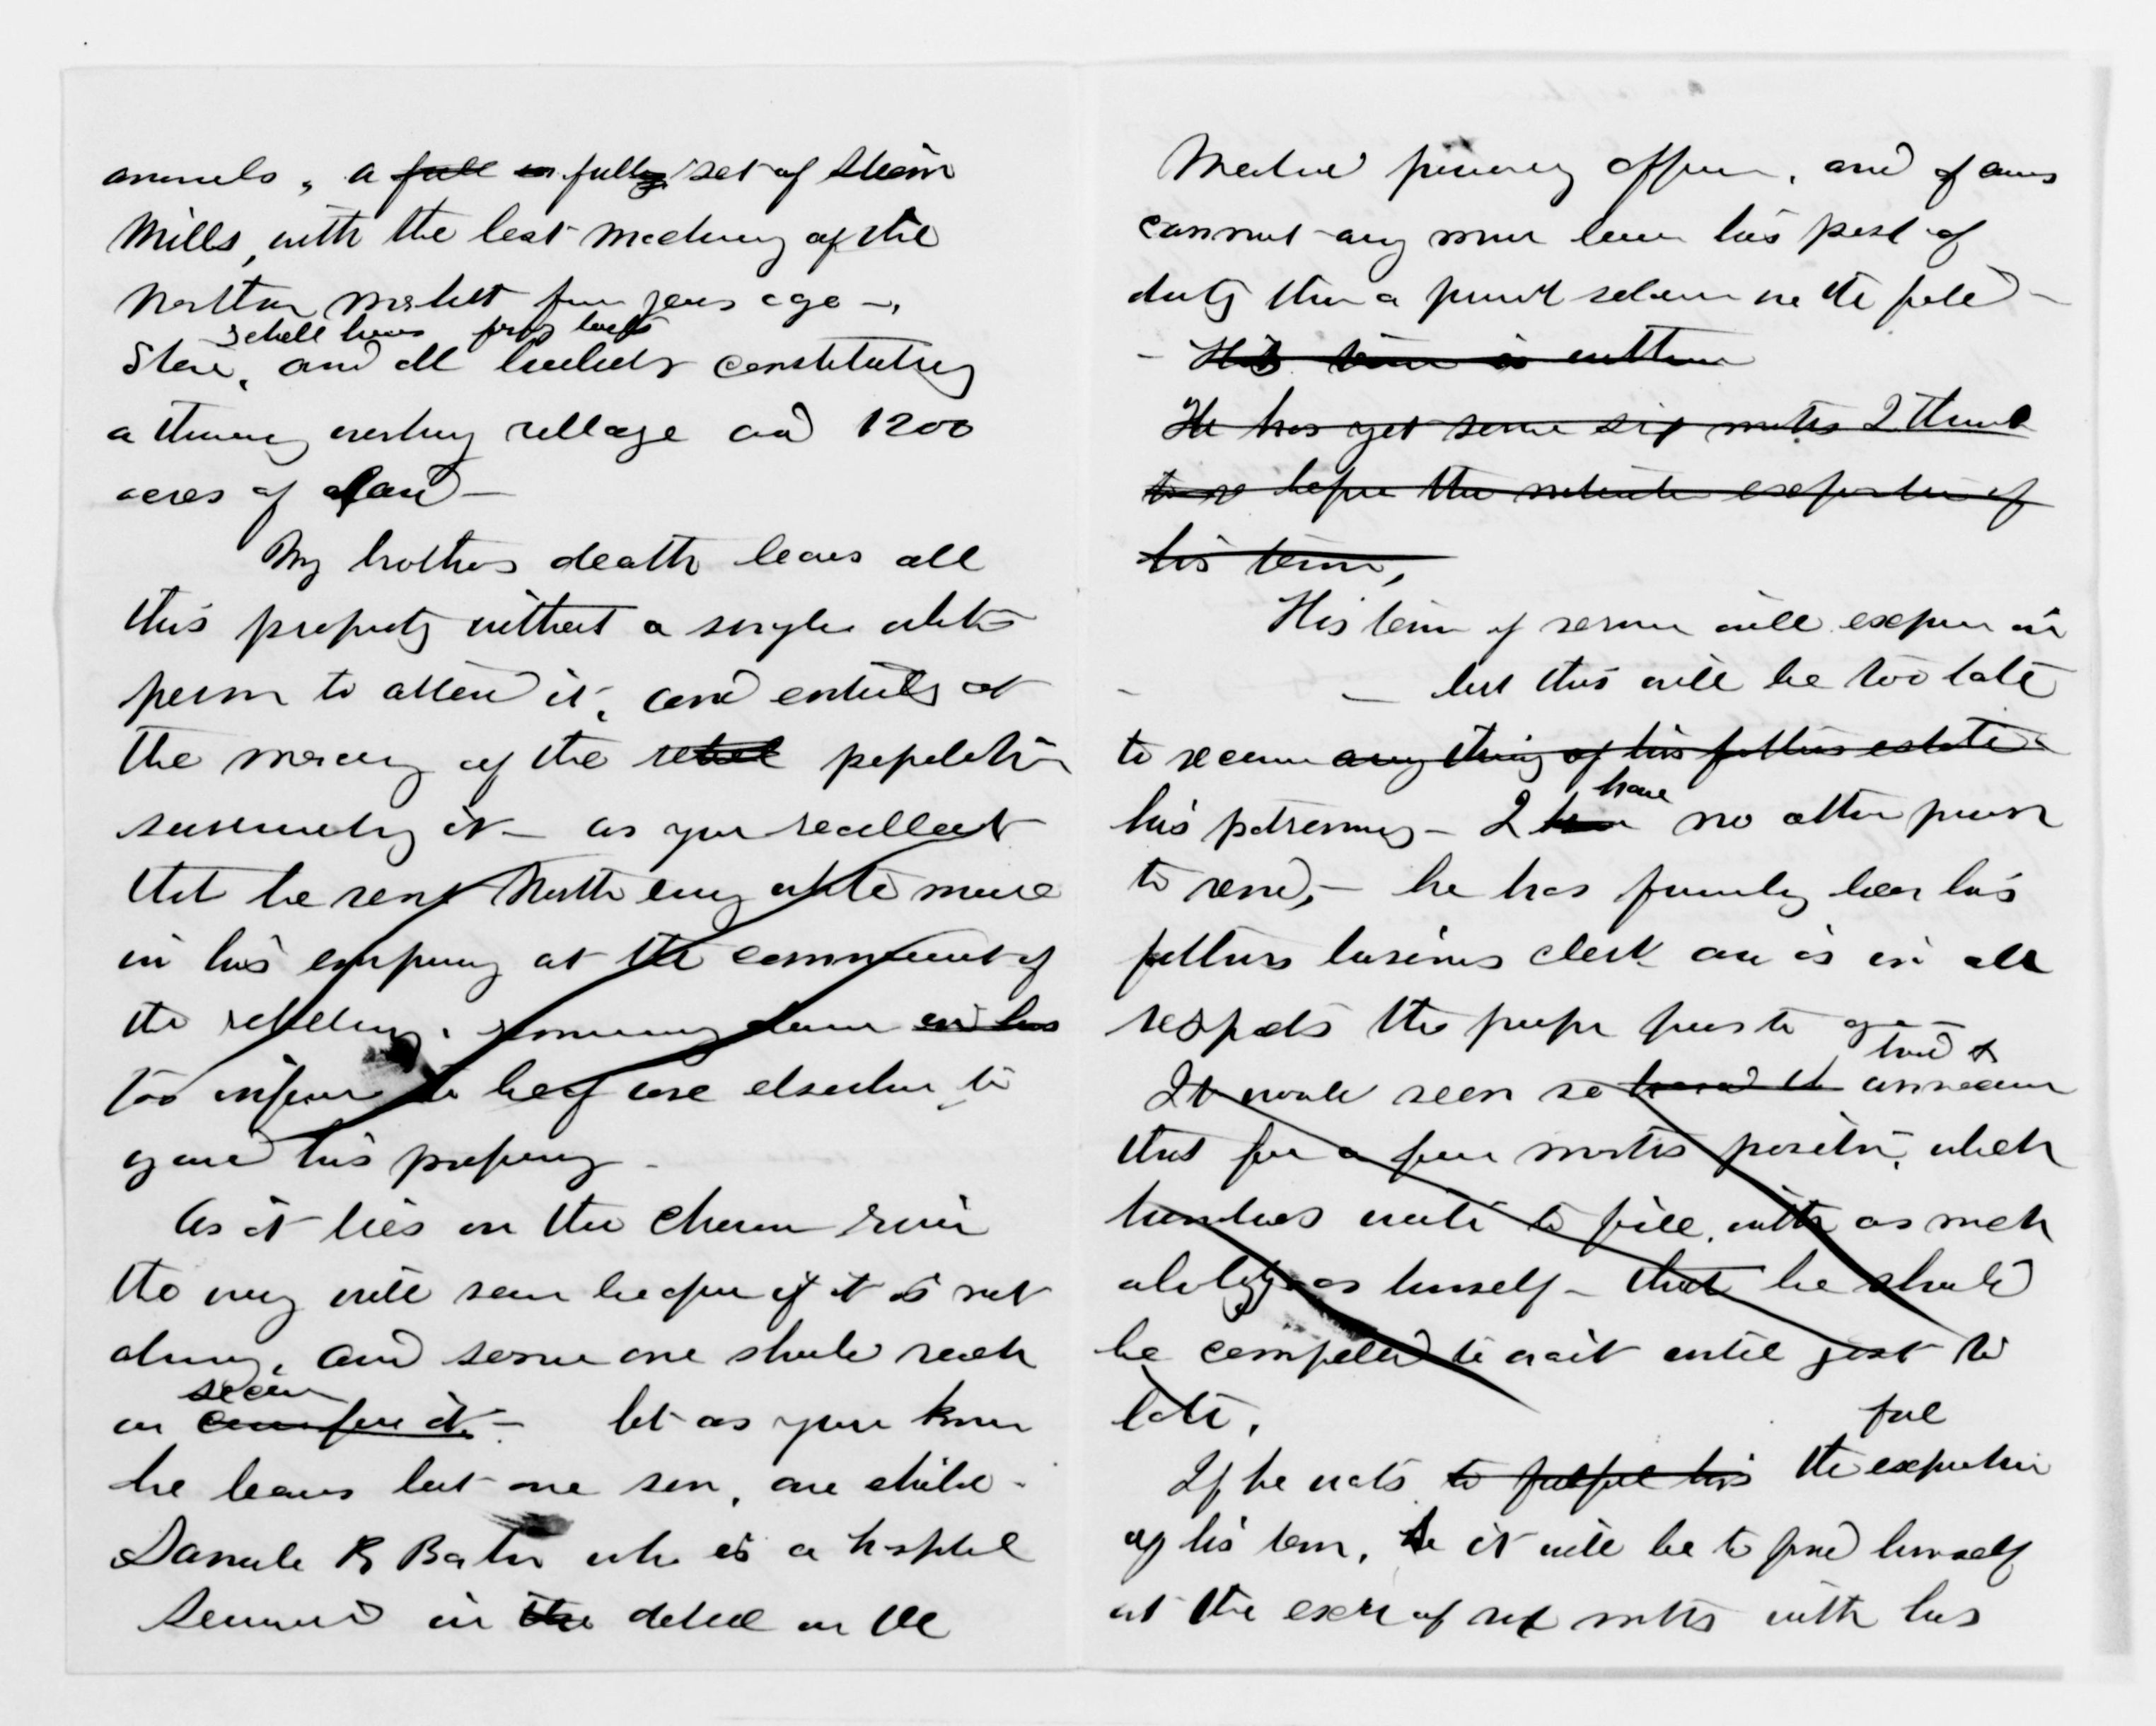 animals, a full in fully set of Steam
Mills, with the best machinery of the
Northern market four years ago —,
School house
Store, and all constituting
a village and 1200
acres of land —
My brothers death leaves all
this property without a single white
person to attend it, and entirely at
the mercy of the rebel population
surrounding it — as you recollect
that he sent North every white man
in his employ at the commencement of
the rebellion, remaining alone and his
too infirm to be of use elsewhere to
guard his property —
As it lies on the Chowan river
the way will soon be open if it is not
already, and some one should reach
secure
or care for it — but as you know
he leaves but one son, one child —
Samuel R Barton who is a hospital
Steward in the detail on the
Medical officer, and of course
cannot any more leave his post of
duty than a private soldier in the field —
— His term is
He has yet some six months I think
to before the expiration of
his term,
His term of service will expire in
— but this will be too late
to secure any thing of his fathers estate
have
his patrimony — I have no other person
to send, — he has formerly been his
fathers business clerk and is in all
respects the proper person to go —
hard &
It would seem so hard it
that for a few months position, which
hundreds wait to fill, with as much
ability as himself — that he should
be compelled to wait until just too
late.
full
If he waits to fulfil his the expiration
of his term, he it will be to find himself
at the end of six months with his